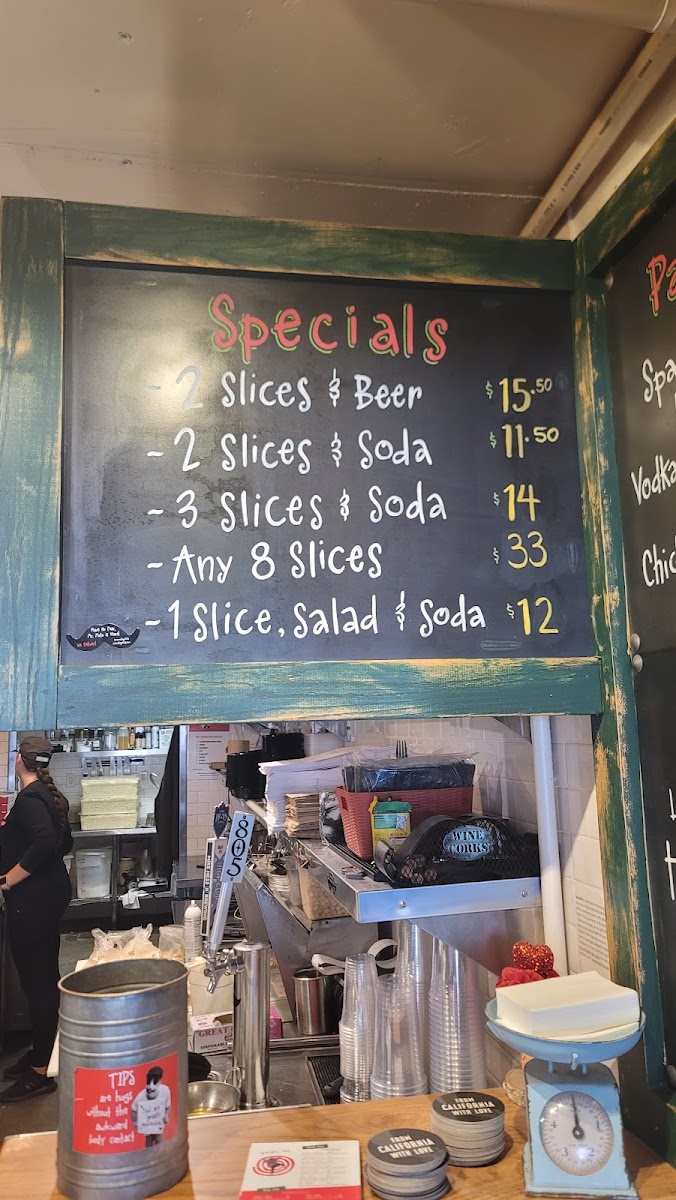 Specials
- 2 Slices & Beer $15.50
- 2 Slices & Soda $11.50
- 3 Slices & Soda $14
- Any 8 Slices $33
- 1 Slice, Salad & Soda $12
Pa
Spa
Vodka
Chic
805
WINE
CORKS
GREAT
TIPS
are hugs
without the
awkward
body contact
FROM
CALIFORNIA
WITH LOVE
FROM
CALIFORNIA
WITH LOVE